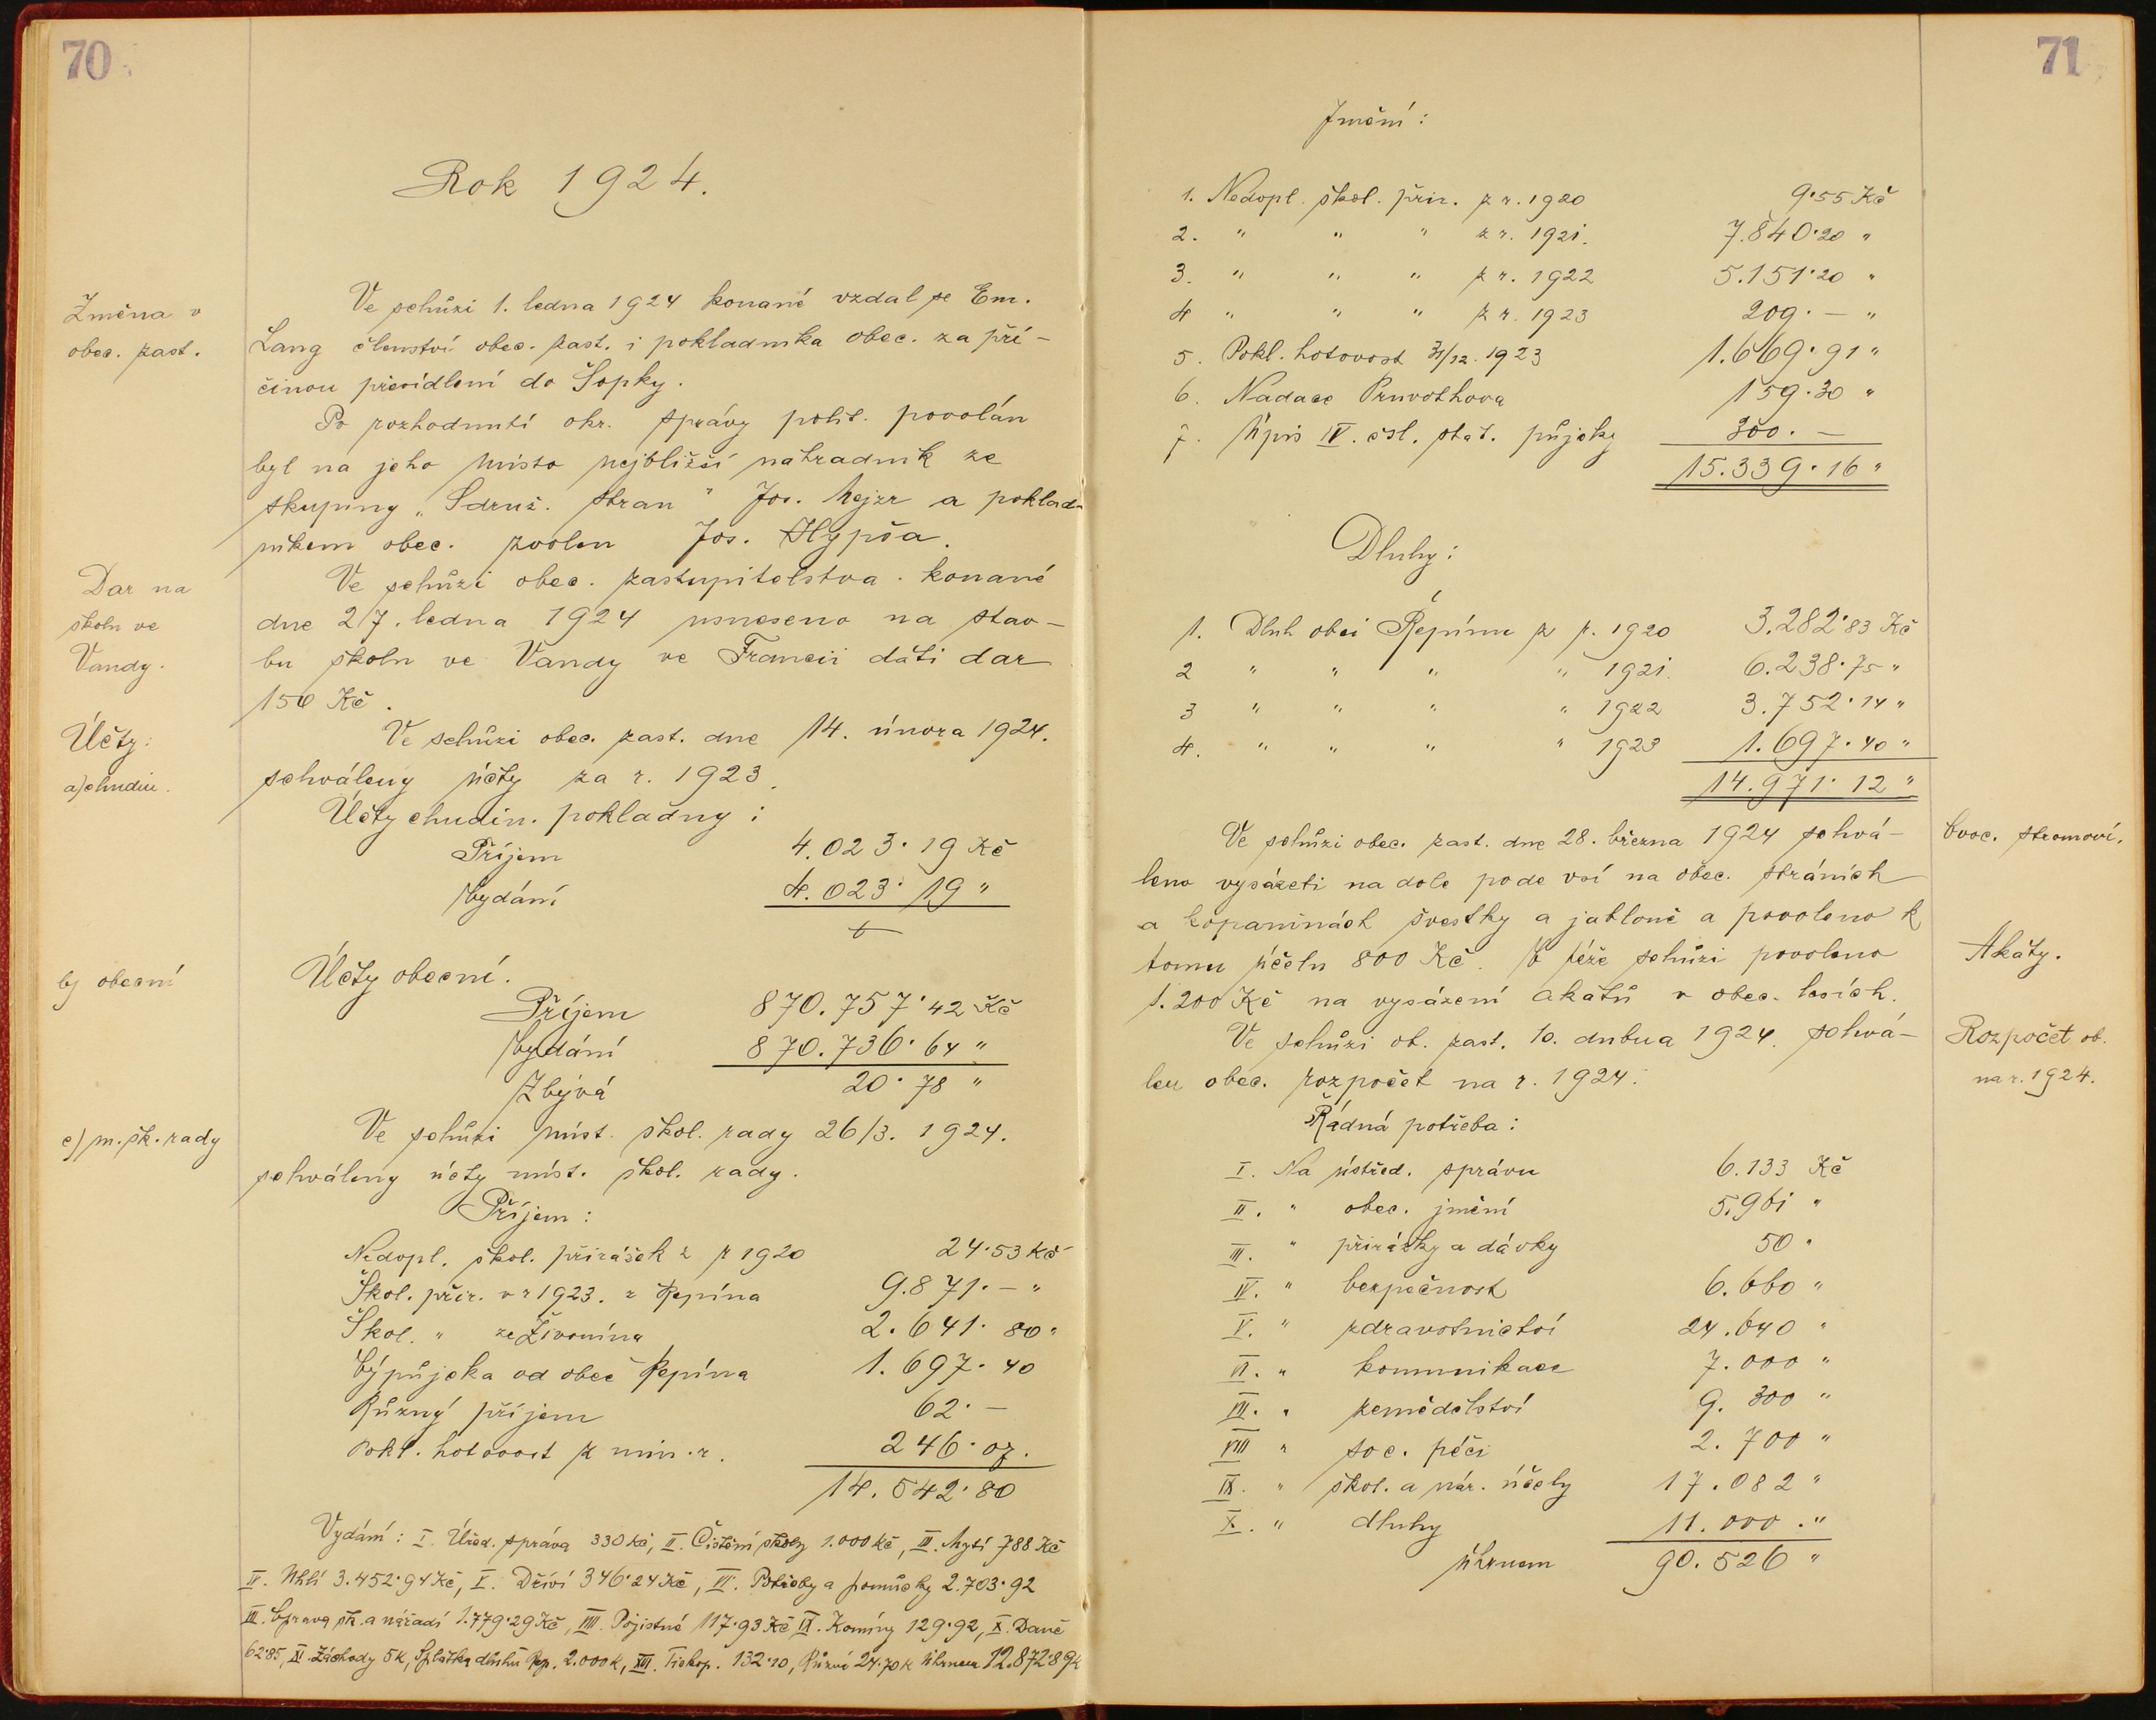 70
Rok 1924.
Změna v
obec. zast.
Ve schůzi 1. ledna 1924 konané vzdal se Em.
Lang členství obec. zast. i pokladníka obec. za pří-
činou přesídlení do Šopky.
Po rozhodnutí okr. správy polit. povolán
byl na jeho místo nejbližší náhradník ze
skupiny „Sdruž. stran" Jos. Mejzr a poklad-
níkem obec. zvolen Jos. Hypša.
Dar na
školu ve
Vandy.
Ve schůzi obec. zastupitelstva konané
dne 27. ledna 1924 usneseno na stav-
bu školu ve Vandy ve Francii dáti dar
150 Kč.
Účty:
a) chudin.
Ve schůzi obec. zast. dne 14. února 1924.
schváleny účty za r. 1923.
Účty chudin. pokladny:
Příjem 4.023·19 Kč
Vydání 4.023·19 "
b) obecní
Účty obecní.
Příjem 870.757·42 Kč
Vydání 870.736·64 "
Zbývá 20·78 "
c) m. šk. rady
Ve schůzi míst. škol. rady 26/3. 1924.
schváleny účty míst. škol. rady.
Příjem:
Nedopl. škol. přirážek z r 1920 24·53 Kč
Škol. přir. v r 1923. z Řepína 9.871·— "
Škol. " ze Živonína 2.641·80 "
Výpůjčka od obce Řepína 1.697·40
Různý příjem 62·—
Pokl. hotovost z min. r. 246·07.
14.542·80
Vydání: I. Úřad. správa 330 Kč, II. Čistění školy 1.000 Kč, III. Mytí 788 Kč
IV. Uhlí 3.452·94 Kč, V. Dříví 346·24 Kč, VI. Potřeby a pomůcky 2.703·92
VII. Oprava šk. a nářadí 1.779·29 Kč, VIII. Pojistné 117·93 Kč IX. Komíny 129·92, X. Daně
62·85, XI. Záchody 5 K, Splátka dluhu Řep. 2.000 K, XIII. Tiskop. 132·10, Různé 24·70 K Úhrnem 12.872·89 K
71
Jmění:
1. Nedopl. škol. přir. z r. 1920 9·55 Kč
2. " " " z r. 1921. 7.840·20 "
3. " " " z r. 1922 5.151·20 "
4 " " " z r. 1923 209·— "
5. Pokl. hotovost 31/12. 1923 1.669·91 "
6. Nadace Pruvothova 159·30 "
7. Úpis IV. čsl. stát. půjčky 300·—
15.339·16 "
Dluhy:
1. Dluh obci Řepínu z r. 1920 3.282·83 Kč
2 " " " " 1921. 6.238·75 "
3 " " " " 1922 3.752·14 "
4. " " " " 1923 1.697·40 "
14.971·12 "
Ovoc. stromoví.
Ve schůzi obec. zast. dne 28. března 1924 schvá-
leno vysázeti na dole pode vsí na obec. stráních
a kopaninách švestky a jabloně a povoleno k
tomu účelu 800 Kč. V téže schůzi povoleno
Akáty.
1.200 Kč na vysázení akátů v obec. lesích.
Ve schůzi ob. zast. 10. dubna 1924. schvá-
Rozpočet ob.
na r. 1924.
len obec. rozpočet na r. 1924.
Řádná potřeba:
I. Na ústřed. správu 6.133 Kč
II. " obec. jmění 5.961 "
III. " přirážky a dávky 50 "
IV. " bezpečnost 6.660 "
V. " zdravotnictví 24.640 "
VI. " komunikace 7.000 "
VII. " zemědělství 9.300 "
VIII " soc. péči 2.700 "
IX. " škol. a nár. účely 17.082 "
X. " dluhy 11.000. "
úhrnem 90.526 "